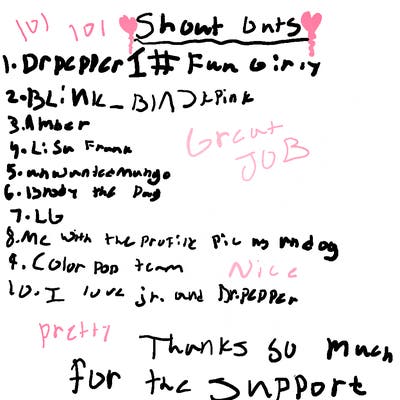 101 101 Shout outs
1. Drpepper 1# Fan Girly
2. BLiNK_BlAckPink
3. Amber
4. LiSa Frank
5. unwantedmango
6. Brody the Dog
7. LG
8. Me with the profile pic as
9. Color pop team
10. I love jr. and Dr.pepper
Great
JOB
Nice
pretty
Thanks so much
for the support